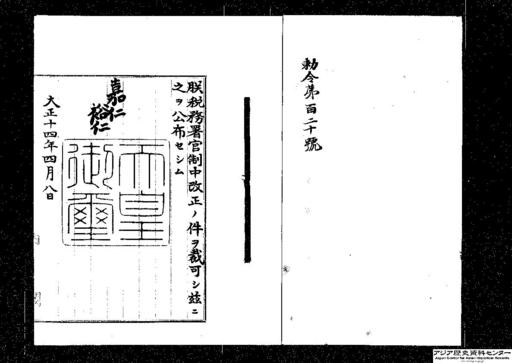 勅令第百二十號
朕税務署官制中改正ノ件ヲ裁可シ玆ニ
之ヲ公布セシム
嘉仁
裕仁
天皇
御璽
大正十四年四月八日
アジア歴史資料センター
Japan Center for Asian Historical Records